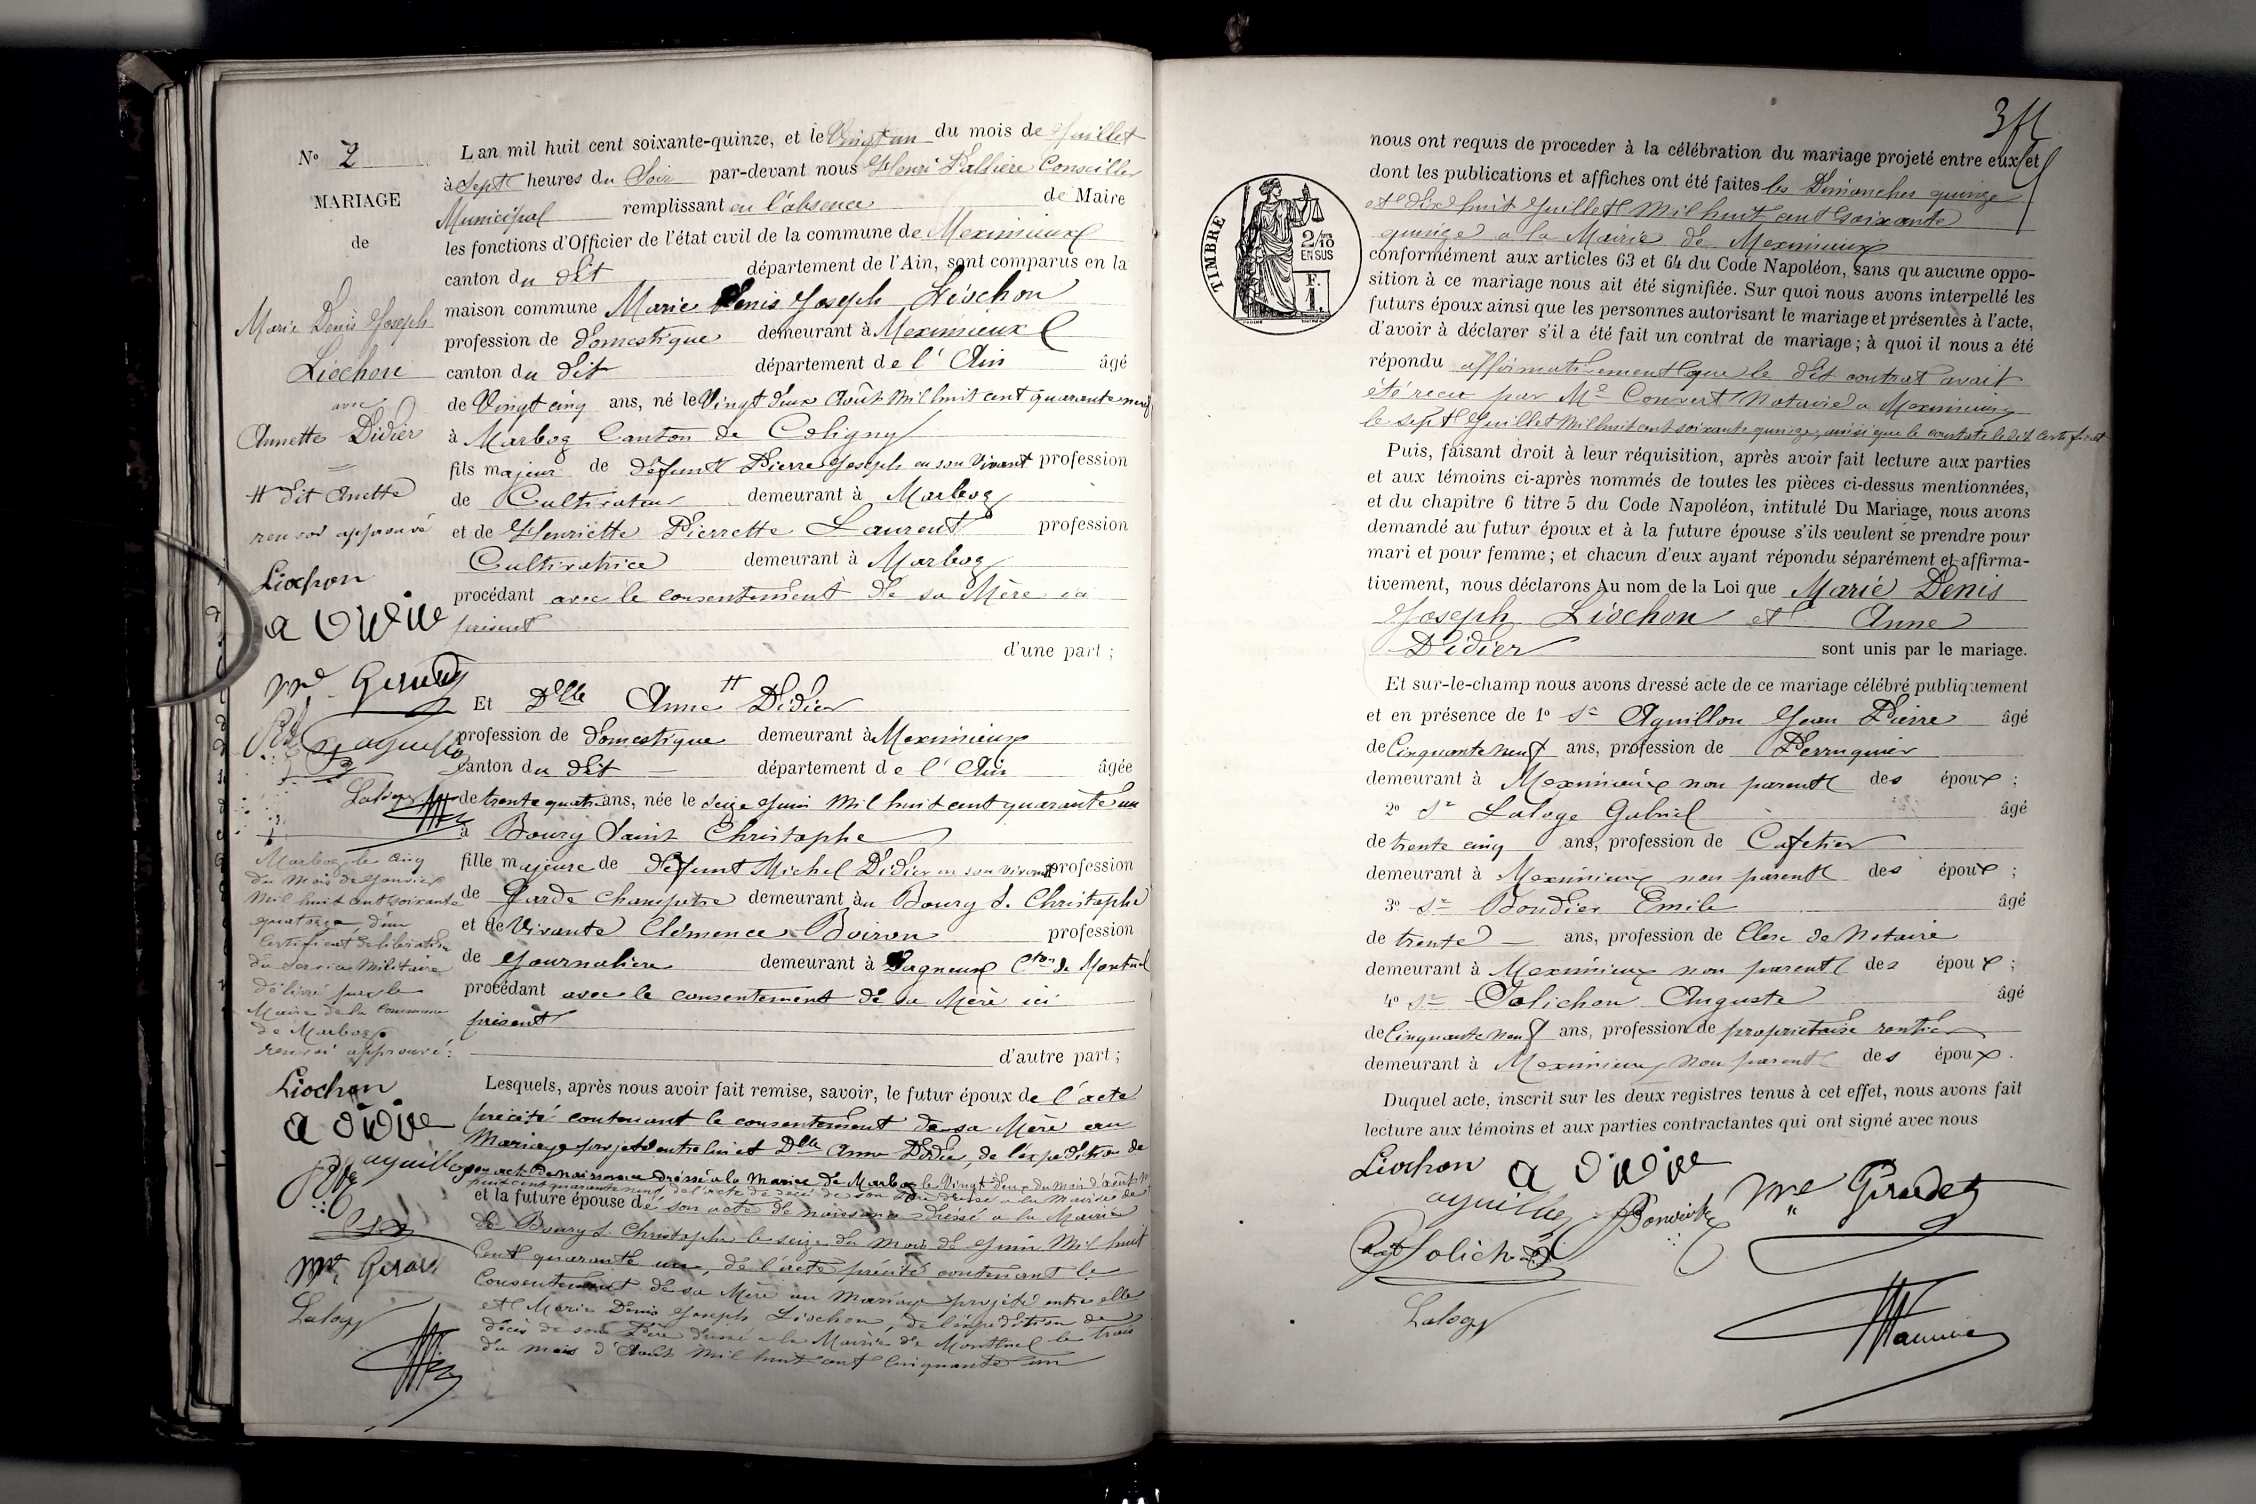 N° 2
MARIAGE
de
Marie Denis Joseph
Liochon
avec
Annette Didier
# dit Anette
renvoi approuvé
Liochon
a Didie
me Girudet
Laloge
Marboz le cinq
du mois de Janvier
mil huit cent soixante
quatorze, d'un
Certificat de libération
du service Militaire
délivré par le
Maire de la Commune
de Marboz
renvoi approuvé:
Liochon
a didie
aguillon
me Girud
Laloge
L'an mil huit cent soixante-quinze, et le Vingt un du mois de Juillet
à Sept heures du Soir par-devant nous Henri Conseiller
Municipal remplissant en l'absence de Maire
les fonctions d'Officier de l'état civil de la commune de Meximieux
canton du dit département de l'Ain, sont comparus en la
maison commune Marie Denis Joseph Liochon
profession de domestique demeurant à Meximieux
canton du dit département de l'Ain âgé
de Vingt cinq ans, né le Vingt deux Août mil huit cent quarante neuf
à Marboz Canton de Coligny
fils majeur de défunt Pierre Joseph en son vivant profession
de Cultivateur demeurant à Marboz
et de Henriette Pierrette Laurent profession
Cultivatrice demeurant à Marboz
procédant avec le consentement de sa Mère ici
présent
d'une part ;
Et Dlle Anne # Didier
profession de domestique demeurant à Meximieux
canton du dit département de l'Ain âgée
de trente quatre ans, née le seize Juin mil huit cent quarante un
à Bourg Saint Christophe
fille majeure de défunt Michel Didier en son vivant profession
de Garde Champetre demeurant au Bourg S. Christophe
et de Vivante Clémence Boiron profession
de Journaliere demeurant à Dagneux Cton de Montluel
procédant avec le consentement de sa Mère ici
présent
d'autre part ;
Lesquels, après nous avoir fait remise, savoir, le futur époux de l'acte
précité contenant le consentement de sa Mère au
Mariage projeté entre lui et Dlle Anne Didier, de l'expédition de
son acte de naissance dressé a la Mairie de Marboz le Vingt deux du mois d'août mil
huit cent quarante neuf, de l'acte de décès de son Père dressé a la Mairie de
et la future épouse de son acte de naissance dressé a la Mairie
de Bourg S. Christophe le seize du mois de Juin Mil huit
Cent quarante un, de l'acte précité contenant le
Consentement de sa Mère au Mariage projeté entre elle
et Marie Denis Joseph Liochon, de l'expédition de
décès de son Père dressé a la Mairie de Montluel le trois
du mois d'Août mil huit cent cinquante un
TIMBRE
2/10
EN SUS
F.
1.
nous ont requis de proceder à la célébration du mariage projeté entre eux et
dont les publications et affiches ont été faites les Dimanches quinze
et dix huit Juillet Mil huit cent soixante
quinze a la Mairie de Meximieux
conformément aux articles 63 et 64 du Code Napoléon, sans qu'aucune oppo-
sition à ce mariage nous ait été signifiée. Sur quoi nous avons interpellé les
futurs époux ainsi que les personnes autorisant le mariage et présentes à l'acte,
d'avoir à déclarer s'il a été fait un contrat de mariage ; à quoi il nous a été
répondu affirmativement que le dit contrat avait
été recu par Me Convert Notaire a Meximieux
le sept Juillet Mil huit cent soixante quinze, ainsi que le constate le dit Certificat
Puis, faisant droit à leur réquisition, après avoir fait lecture aux parties
et aux témoins ci-après nommés de toutes les pièces ci-dessus mentionnées,
et du chapitre 6 titre 5 du Code Napoléon, intitulé Du Mariage, nous avons
demandé au futur époux et à la future épouse s'ils veulent se prendre pour
mari et pour femme ; et chacun d'eux ayant répondu séparément et affirma-
tivement, nous déclarons Au nom de la Loi que Marie Denis
Joseph Liochon et Anne
Didier sont unis par le mariage.
Et sur-le-champ nous avons dressé acte de ce mariage célébré publiquement
et en présence de 1° Sr Aguillon Jean Pierre âgé
de Cinquante neuf ans, profession de Perruquier
demeurant à Meximieux non parent des époux ;
2° Sr Laloge Gabriel âgé
de trente cinq ans, profession de Cafetier
demeurant à Meximieux non parent des époux ;
3° Sr Boudier Emile âgé
de trente ans, profession de Clerc de Notaire
demeurant à Meximieux non parent des époux ;
4° Sr Jolichon Auguste âgé
de Cinquante neuf ans, profession de propriétaire rentier
demeurant à Meximieux non parent des époux.
Duquel acte, inscrit sur les deux registres tenus à cet effet, nous avons fait
lecture aux témoins et aux parties contractantes qui ont signé avec nous
Liochon a didie
aguillon me Girudet
Jolichon
Laloge